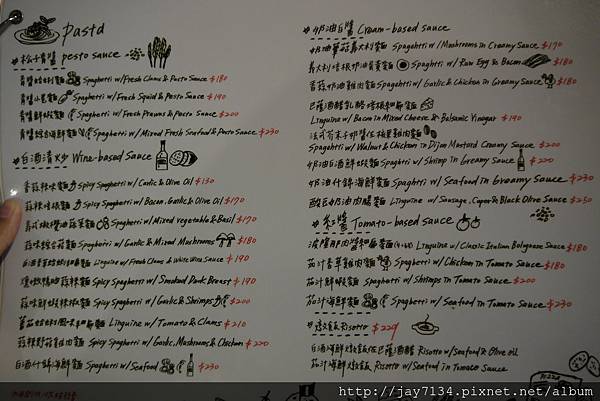 pasta
*松子青醬 pesto sauce
青醬蛤蜊麵 Spaghetti w/Fresh Clams & Pesto Sauce $180
青醬小卷麵 Spaghetti w/Fresh Squid & Pesto Sauce $190
青醬鮮蝦麵 Spaghetti w/Fresh Prawns & Pesto Sauce $200
青醬綜合海鮮麵 Spaghetti w/Mixed Fresh Seafood & Pesto Sauce $230
*白酒清炒 Wine-based Sauce
香蒜辣味麵 Spicy Spaghetti w/Garlic & Olive Oil $130
蒜辣培根麵 Spicy Spaghetti w/Bacon, Garlic & Olive Oil $170
義式橄欖油蔬菜麵 Spaghetti w/Mixed vegetable & Basil $170
蒜味綜合菇麵 Spaghetti w/Garlic & Mixed Mushrooms $180
Linguine w/Fresh Clams & White Wine Sauce $190
蒜辣麵 Spicy Spaghetti w/Smoked Duck Breast $190
蒜味鮮蝦辣椒麵 Spicy Spaghetti w/Garlic & Shrimps $200
蕃茄蛤蜊風味細扁麵 Linguine w/Tomato & Clams $210
蒜辣野菇雞肉麵 Spicy Spaghetti w/Garlic, Mushroom & Chicken $220
白酒什錦海鮮麵 Spaghetti w/Seafood $230
*奶油白醬 Cream-based sauce
奶油蕈菇義大利麵 Spaghetti w/Mushrooms in Creamy Sauce $170
義大利培根奶油蛋黃麵 Spaghetti w/Raw Egg & Bacon $180
香蒜奶油雞肉麵 Spaghetti w/Garlic & Chicken in Creamy Sauce $180
巴薩米醋乳酪培根細扁麵
Linguine w/Bacon in Mixed Cheese & Balsamic Vinegar $190
法式芥末子奶醬佐核果雞肉麵
Spaghetti w/Walnut & Chicken in Dijon Mustard Creamy Sauce $200
奶油白酒鮮蝦麵 Spaghetti w/Shrimp in Creamy Sauce $200
奶油什錦海鮮麵 Spaghetti w/Seafood in Creamy Sauce $230
酸豆奶油肉腸麵 Linguine w/Sausage, Caper & Black Olive Sauce $250
*紅醬 Tomato-based sauce
波隆那肉醬細扁麵 Linguine w/Classic Italian Bolognese Sauce $180
茄汁香草雞肉麵 Spaghetti w/Chicken in Tomato Sauce $180
茄汁鮮蝦麵 Spaghetti w/Shrimps in Tomato Sauce $200
茄汁海鮮麵 Spaghetti w/Seafood in Tomato Sauce $230
*燉飯 Risotto $229
白酒海鮮燉飯佐巴薩米醋 Risotto w/Seafood & Olive oil
茄汁海鮮燉飯 Risotto w/Seafood in Tomato Sauce
http://jay7134.pixnet.net/album